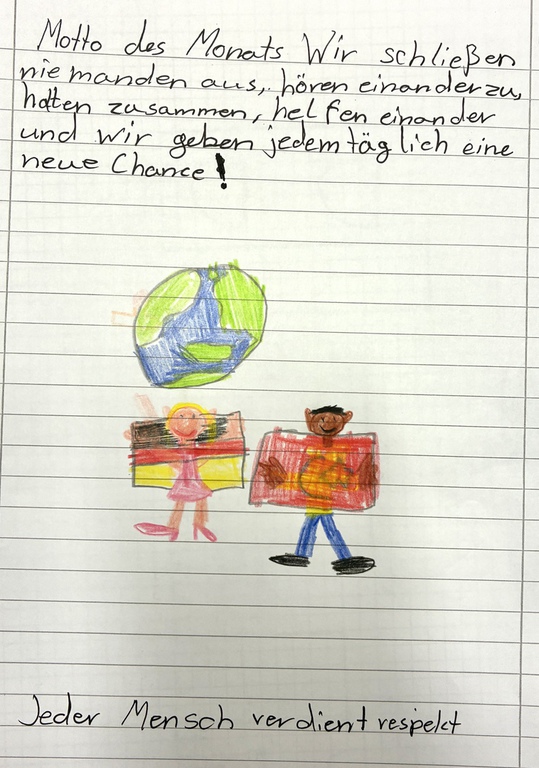 Motto des Monats Wir schließen
niemanden aus, hören einander zu,
halten zusammen, helfen einander
und wir geben jedem täglich eine
neue Chance!
Jeder Mensch verdient respekt